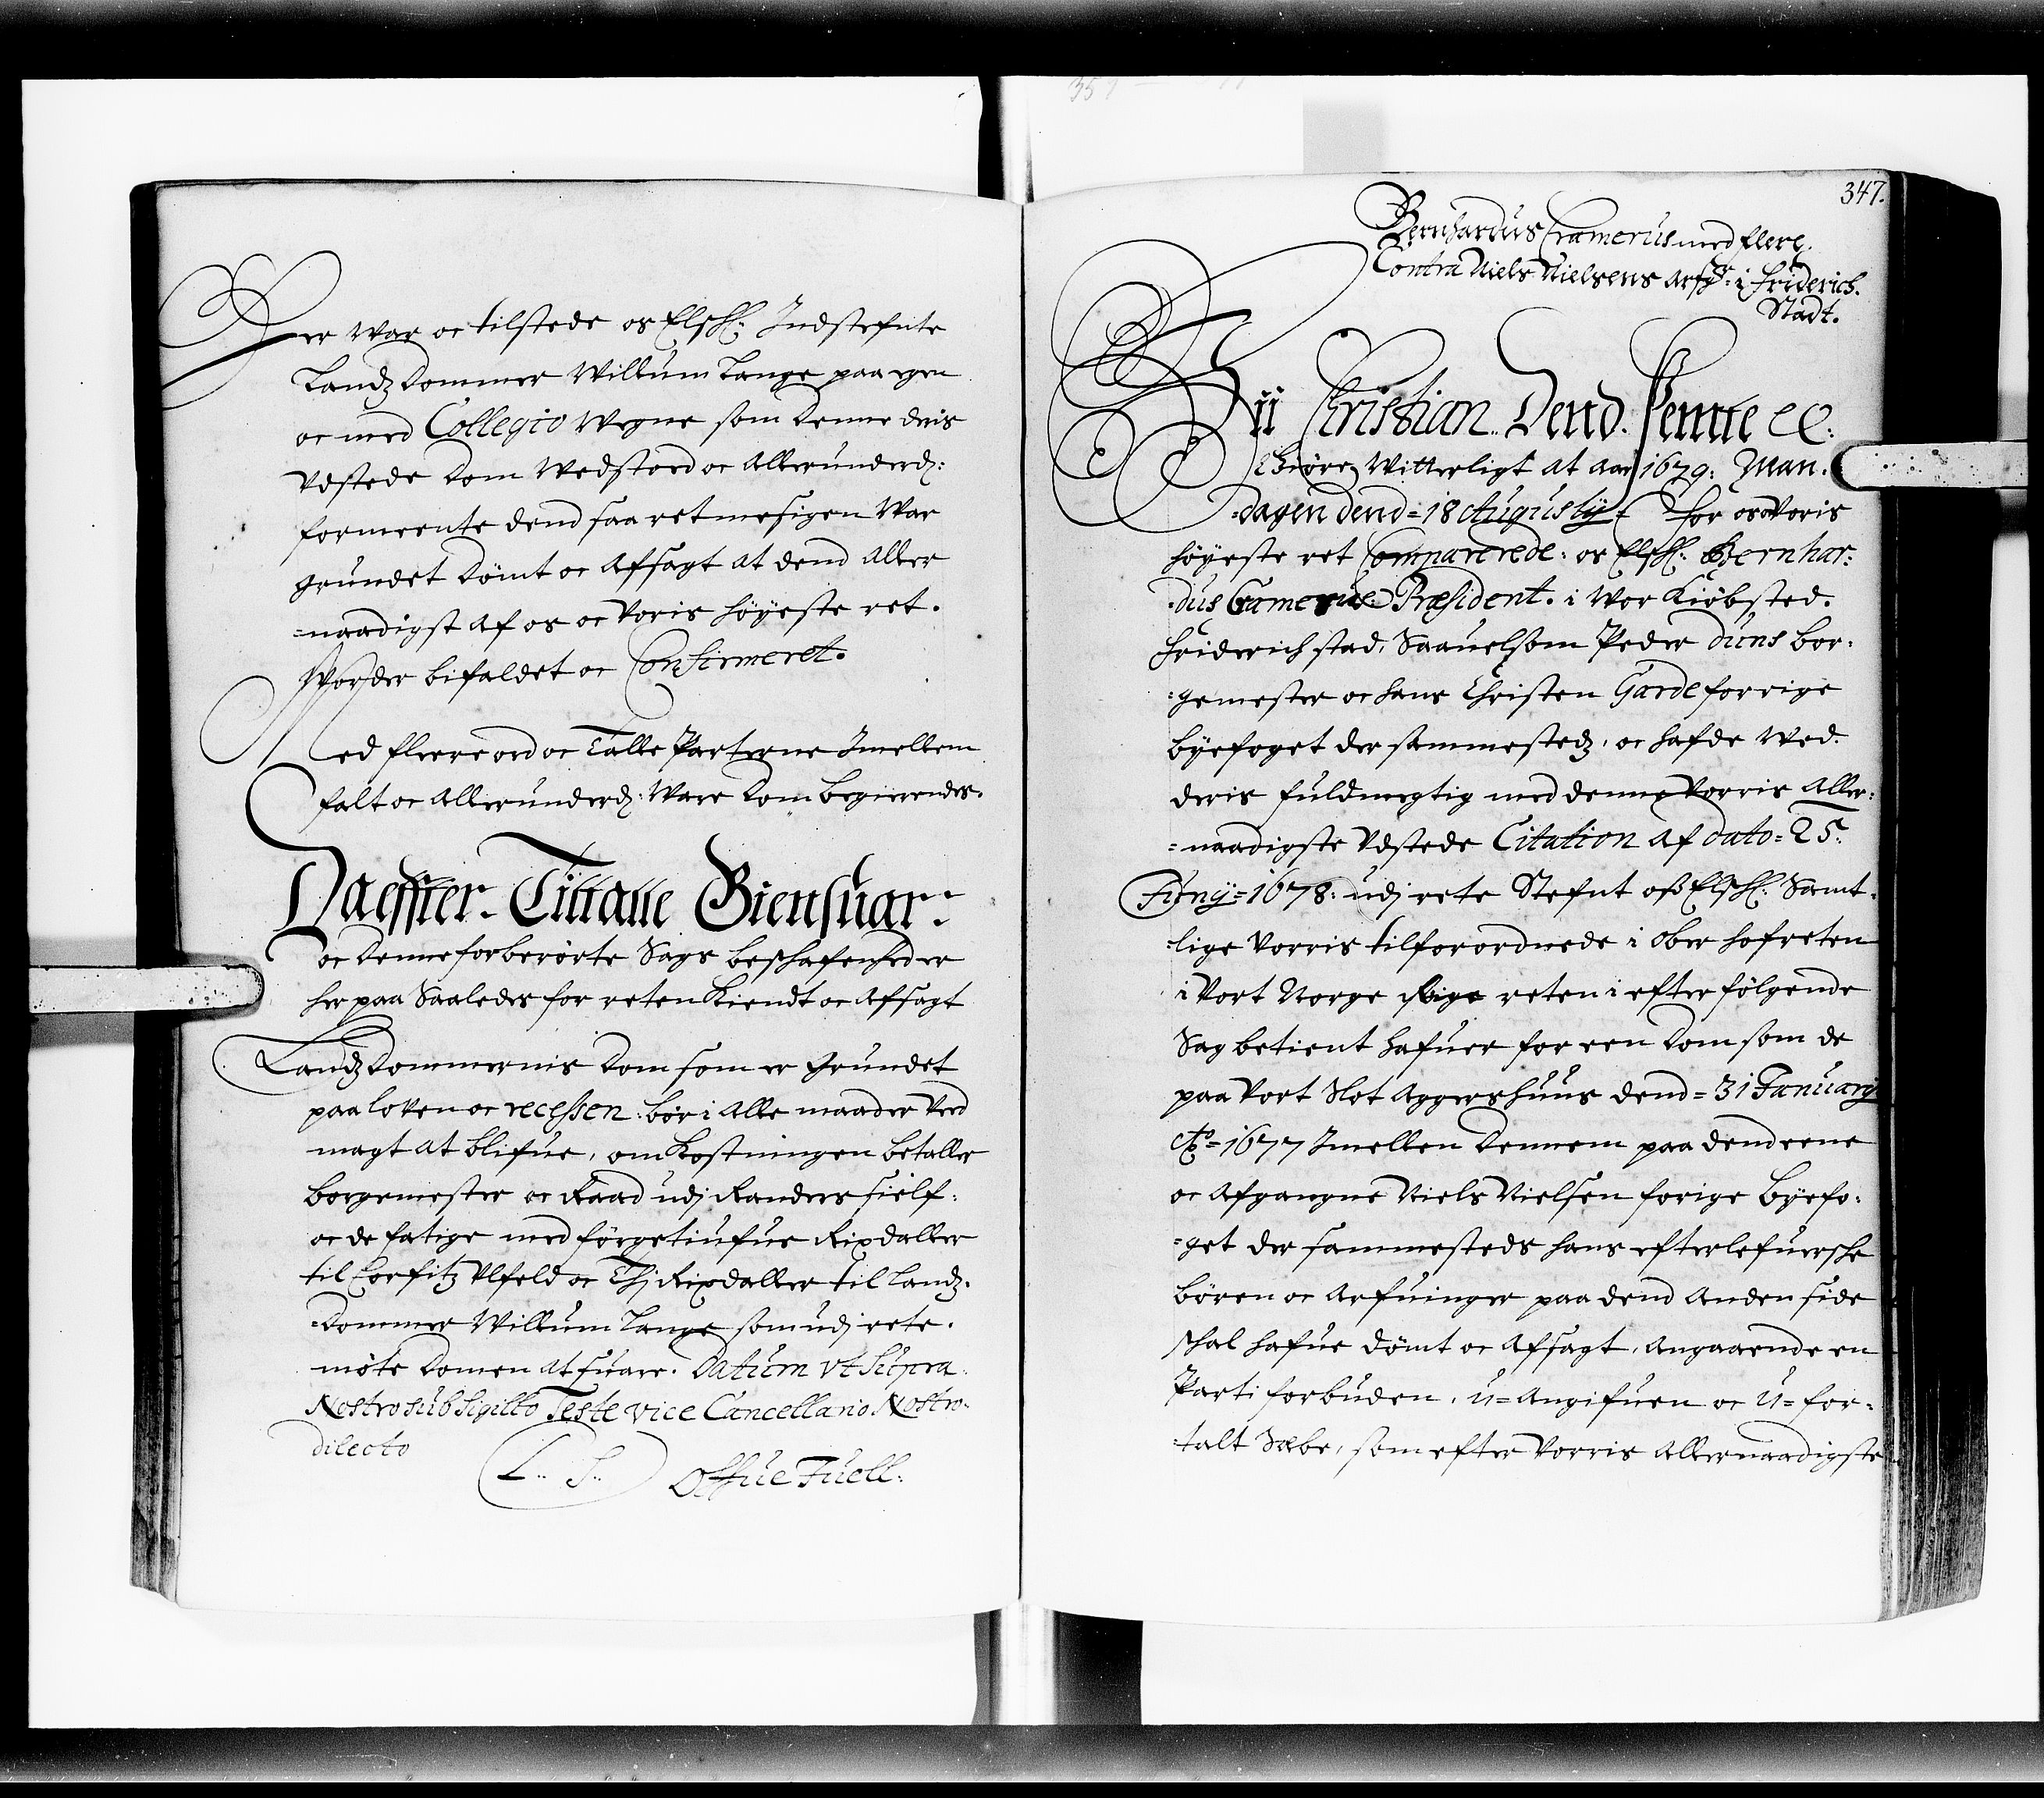 Der War oc tilstede os Elschl: Indstefnte
Landzdommer Willum Lange paa egen
oc med Collegio Wegne som denne deris
Vdstede dom Wedstod oc Allerunderd:
formeente dend saa retmesigen War
grundet dømt oc Afsagt at dend Aller
=naadigst Af os oc Voris Høyeste ret.
Worder bifaldet oc Confirmeret.
Med fleere ord oc Talle Parterne Imellem
falt oc Allerunderd: Ware dom begierendes.
Da effter Tilltalle Giensuar:
oc denne forberørte Sags beschafenhed er
her paa Saaledes for reten Kiendt oc Afsagt
Landzdommernis dom som er grundet
paa loven oc recessen bør i Alle maader ved
magt at blifue, omkostningen betaller
borgemester oc Raad udj Randers sielf:
oc de fatige med førgetiufue Rixdaller
til Corfitz Ulfeld oc Thj Rixdaller til Landz-
=dommer Willum Lange som udj rete.
møte domen at suare. Datum vt supra
Nostro sub Sigillo Teste vice Cancellario Nostro.
dilecto
L.. S.. Offue Juell:
347.
Bernhardus Cramerus med flere.
Contra Niels Nielsens arfg: i Friderich.
Stadt.
Vii Christian Dend. Femte etc:
Giøre Witterligt at Aar 1679: Man.
=dagen dend=18 Augustij= For os Voris
Høyeste ret Comparerede: os Elschl: Bernhar:
=dus Cramerus President. i Wor Kiøbsted.
Friderichstad, Saauelsom Peder Duns bor:
=gemester oc Hans Christen Garde forrige
byefoget der sammestedz, oc hafde Wed.
deris fuldmegtig med denne Vorris Aller:
=naadigste Vdstede Citation Af dato=25.
Juny=1678: udj rete Stefnt oss Elschl: Samt-
lige Vorris tilforordnede i Ober Hofreten
i Vort Norge Rige reten i efter følgende
Sag betient hafuer for een dom som de
paa Vort Slot Aggershuus dend=31 January
Ao=1677 Imellem dennem paa dend eene
oc Afgangne Niels Nielsen forige Byefo:
=get der sammesteds hans efterlefuersche
børen oc Arfuinger paa dend Anden side
schal hafue dømt oc Afsagt, Angaaende en
Parti forbuden, u=Angifuen oc U=for:
=talt Sæbe, som efter Vorris Allernaadigste